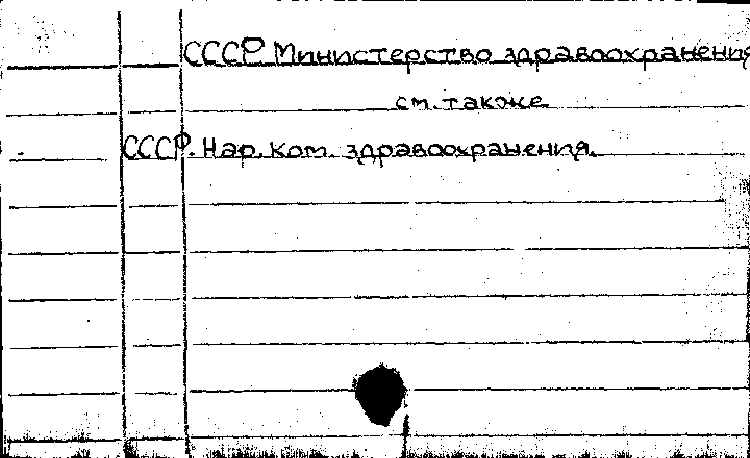 СССР. Министерство здравоохранения
см. также
СССР. Нар. ком. здравоохранения.